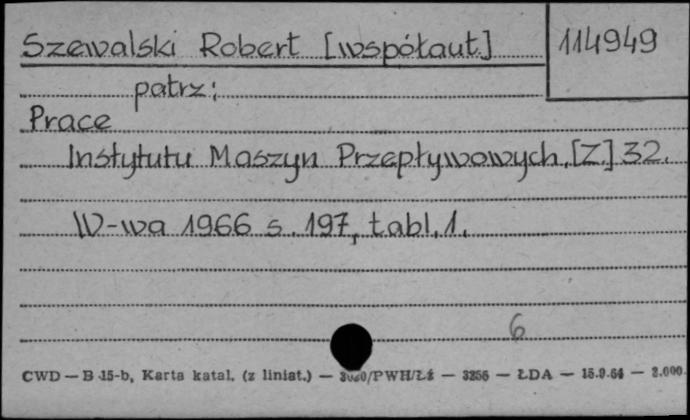 Szewalski Robert [współaut.] 114949
patrz:
Prace
Instytutu Maszyn Przepływowych. [Z.] 32.
W-wa 1966 s. 197, tabl. 1.
6
CWD — B 15-b, Karta katal. (z liniat.) — /PWH/Łź — 3256 — ŁDA — 15.9.64 — 2.000.